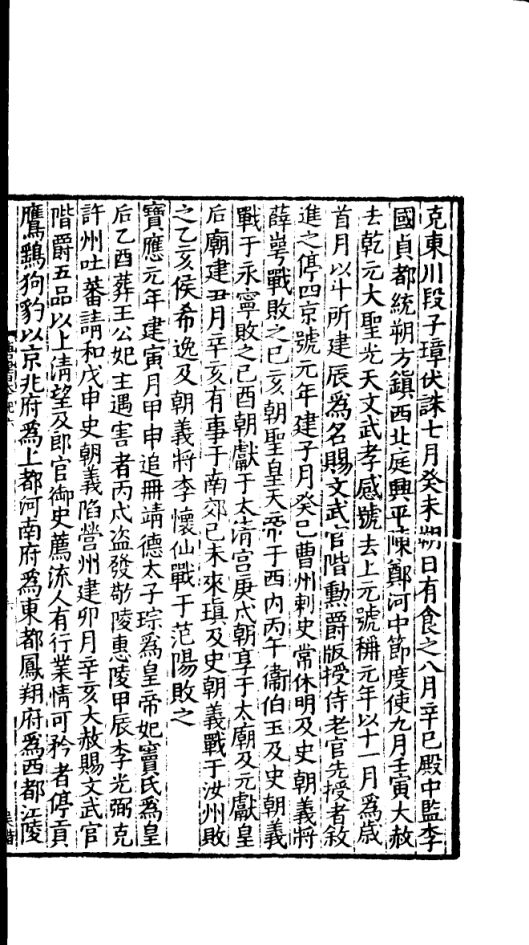 克東川段子璋伏誅七月癸未朔日有食之八月辛巳殿中監李
國貞都統朔方鎮西北庭興平陳鄭河中節度使九月壬寅大赦
去乾元大聖光天文武孝感號去上元號稱元年以十一月爲歲
首月以斗所建辰爲名賜文武官階勳爵版授侍老官先授者敘
進之停四京號元年建子月癸巳曹州刺史常休明及史朝義將
薛崿戰敗之己亥朝聖皇天帝于西内丙午衞伯玉及史朝義
戰于永寧敗之己酉朝獻于太清宫庚戌朝享于太廟及元獻皇
后廟建丑月辛亥有事于南郊己未來瑱及史朝義戰于汝州敗
之乙亥侯希逸及朝義將李懷仙戰于范陽敗之
寶應元年建寅月甲申追冊靖德太子琮爲皇帝妃竇氏爲皇
后乙酉葬王公妃主遇害者丙戌盗發敬陵惠陵甲辰李光弼克
許州吐蕃請和戊申史朝義陷營州建卯月辛亥大赦賜文武官
階爵五品以上清望及郎官御史薦流人有行業情可矜者停貢
鷹鷂狗豹以京兆府爲上都河南府爲東都鳳翔府爲西都江陵